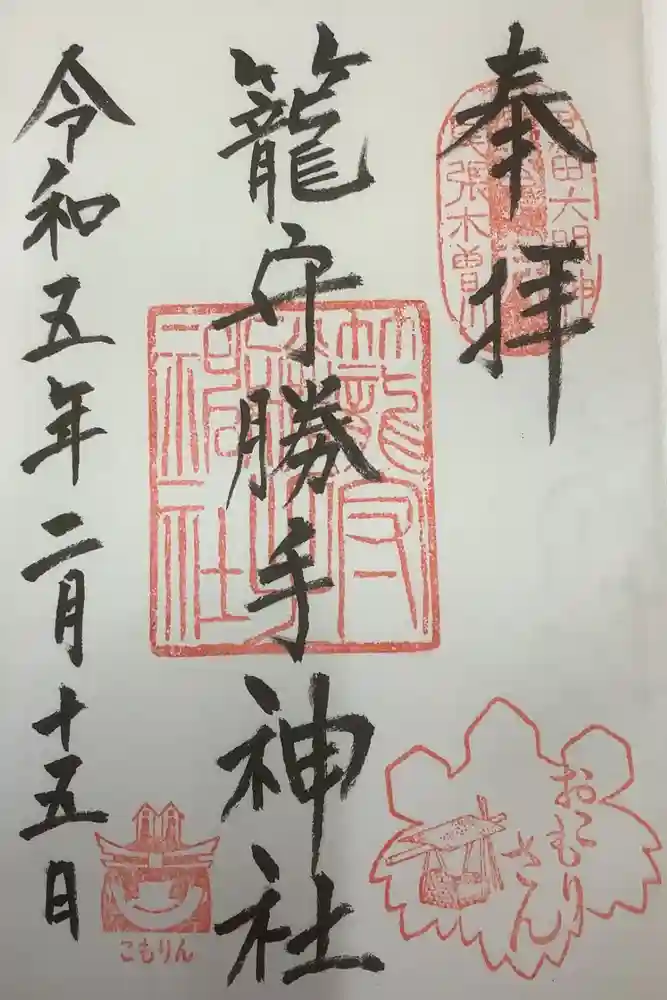 奉拝
尾張木曽川
黒田六明神
籠守勝手神社
籠守勝手神社
令和五年二月十五日
おこもりさん
こもりん